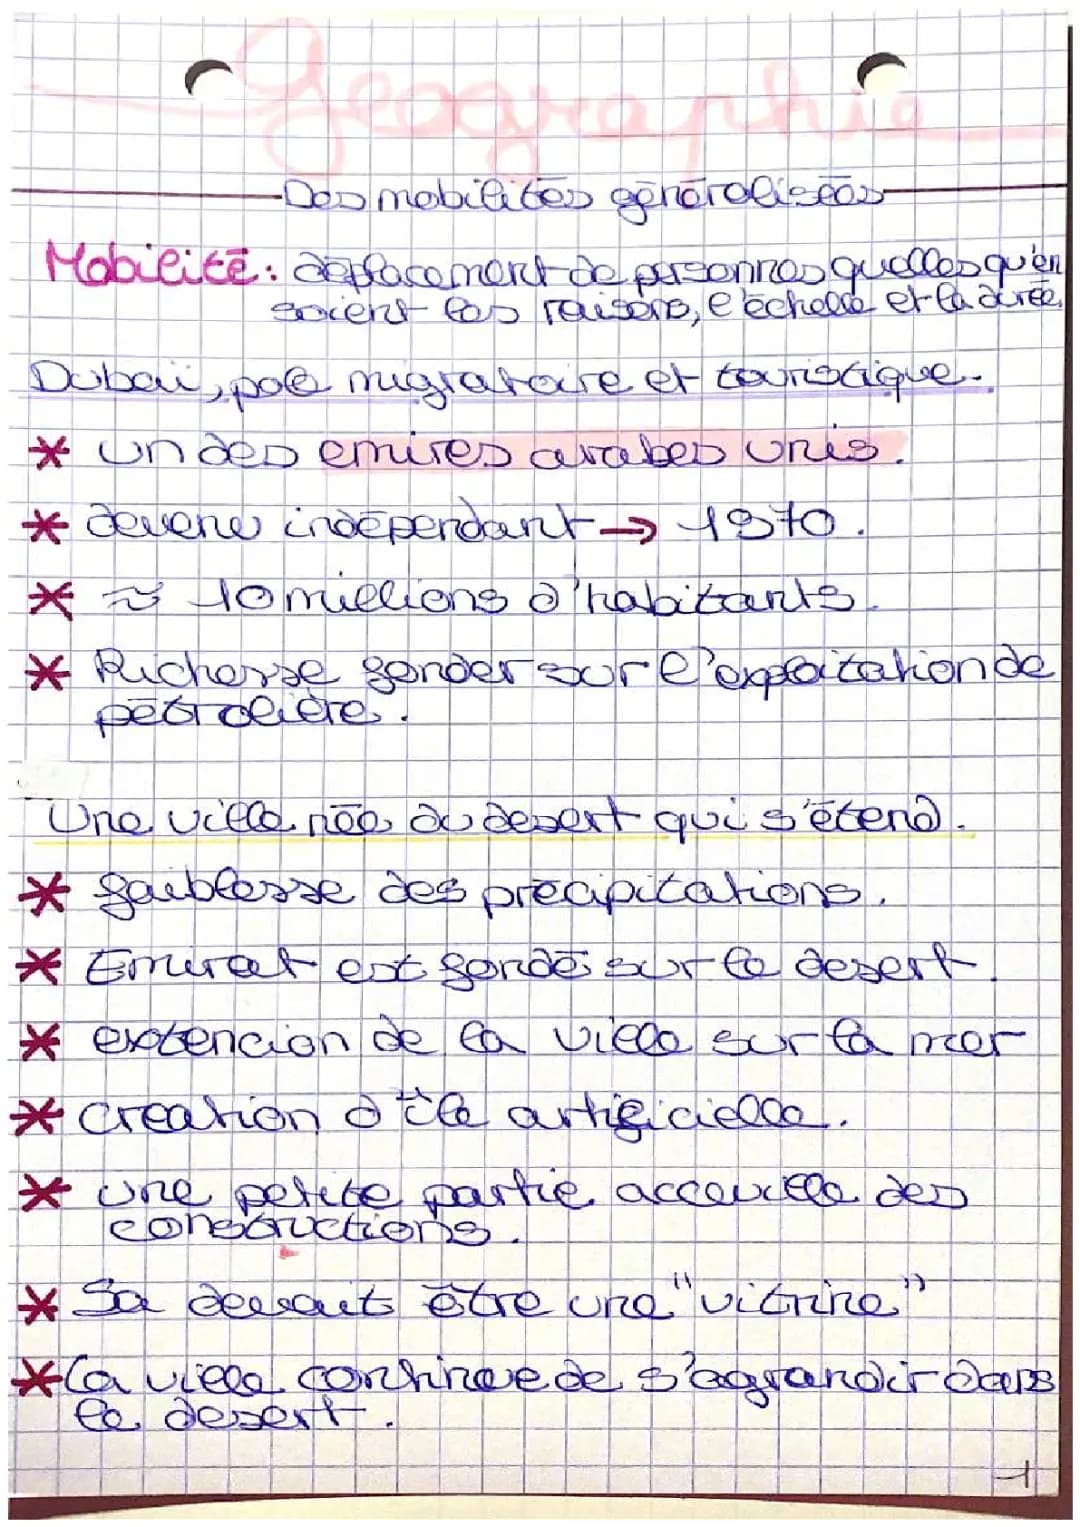 Geographie
Des mobilités généralisées
Mobilité : déplacement de personnes quelles qu'en
soient les raisons, l'échelle et la durée.
Dubaï, pole migratoire et touristique.
* un des emires arabes unis.
* devenu indépendant → 1970.
* ≈ 10 millions d'habitants.
* Richesse fonder sur l'exploitation de
pétrolière.
Une ville née du desert qui s'étend.
* faiblesse des précipitations.
* Emirat est fondé sur le desert.
* extencion de la ville sur la mer
* creation d'île artificielle.
* une petite partie acceuille des
constructions.
* Sa devait être une "vitrine"
* la ville continue de s'agrandir dans
le desert.
1